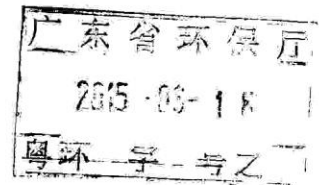 广东省环保厅
2015 -06- 1
粤环 字 号之